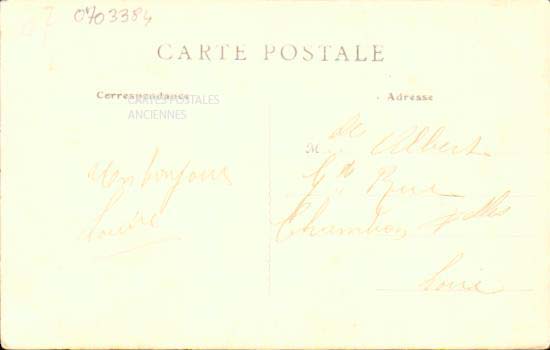 0703384
CARTE POSTALE
Correspondance
Adresse
CARTES POSTALES
ANCIENNES
M de Albert
Gde Rue
Chambon
Loire
Un bonjour
Louise